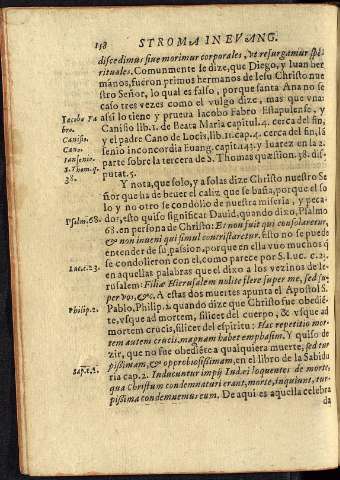 158 STROMA IN EVANG.
discedimus siue morimur corporales, vt resurgamur spi-
rituales. Comunmente se dize, que Diego, y Iuan her
manos, fueron primos hermanos de Iesu Christo nue
stro Señor, lo qual es falso, porque santa Ana no se
caso tres vezes como el vulgo dize, mas que vna:
Iacobo Fa
bro.
Canisio.
Cano.
Iansenio.
S. Thom. q.
38.
assi lo tiene y prueua Iacobo Fabro Estapulense, y
Canisio lib. 1. de Beata Maria capitul. 4. cerca del fin,
y el padre Cano de Locis, lib. 11. cap. 4. cerca del fin, Iá
senio inconcordia Euang. capit. 143. y Iuarez en la 2.
parte sobre la tercera de S. Thomas quæstion. 38. dis-
putat. 5.
Y nota, que solo, y a solas dize Christo nuestro Se
ñor que ha de beuer el caliz que se baña, porque el so
lo y no otro se condolio de nuestra miseria, y peca-
Psalm. 68.
dor, esto quiso significar Dauid, quando dixo, Psalmo
68. en persona de Christo: Et non fuit qui consolaretur,
& non inueni qui simul contristaretur. Esto no se puede
entender de su passion, porque en ella vuo muchos q̃
Luc. c. 23.
se condolieron con el, como parece por S. Luc. c. 23.
en aquellas palabras que el dixo a los vezinos de Ie-
rusalem: Filiæ Hierusalem nolite flere super me, sed su-
per vos, &c. A estas dos muertes apunta el Apostol S.
Philip. 2.
Pablo, Philip. 2. quando dize que Christo fue obediē-
te, vsque ad mortem, silicet del cuerpo, & vsque ad
mortem crucis, silicet del espiritu: Hac repetitio mor-
tem autem crucis, magnam habet emphasim. Y quiso de
zir, que no fue obediēre a qualquiera muerte, sed tur
Sap. c. 2.
pissimam, & opprobiosissimam, en el libro de la Sabidu
ria cap. 2. Inducuntur impij Iudæi loquentes de morte,
qua Christum condemnaturi erant, morte, inquiunt, tur-
pissima condemnemus eum. De aqui es aquella celebra
da